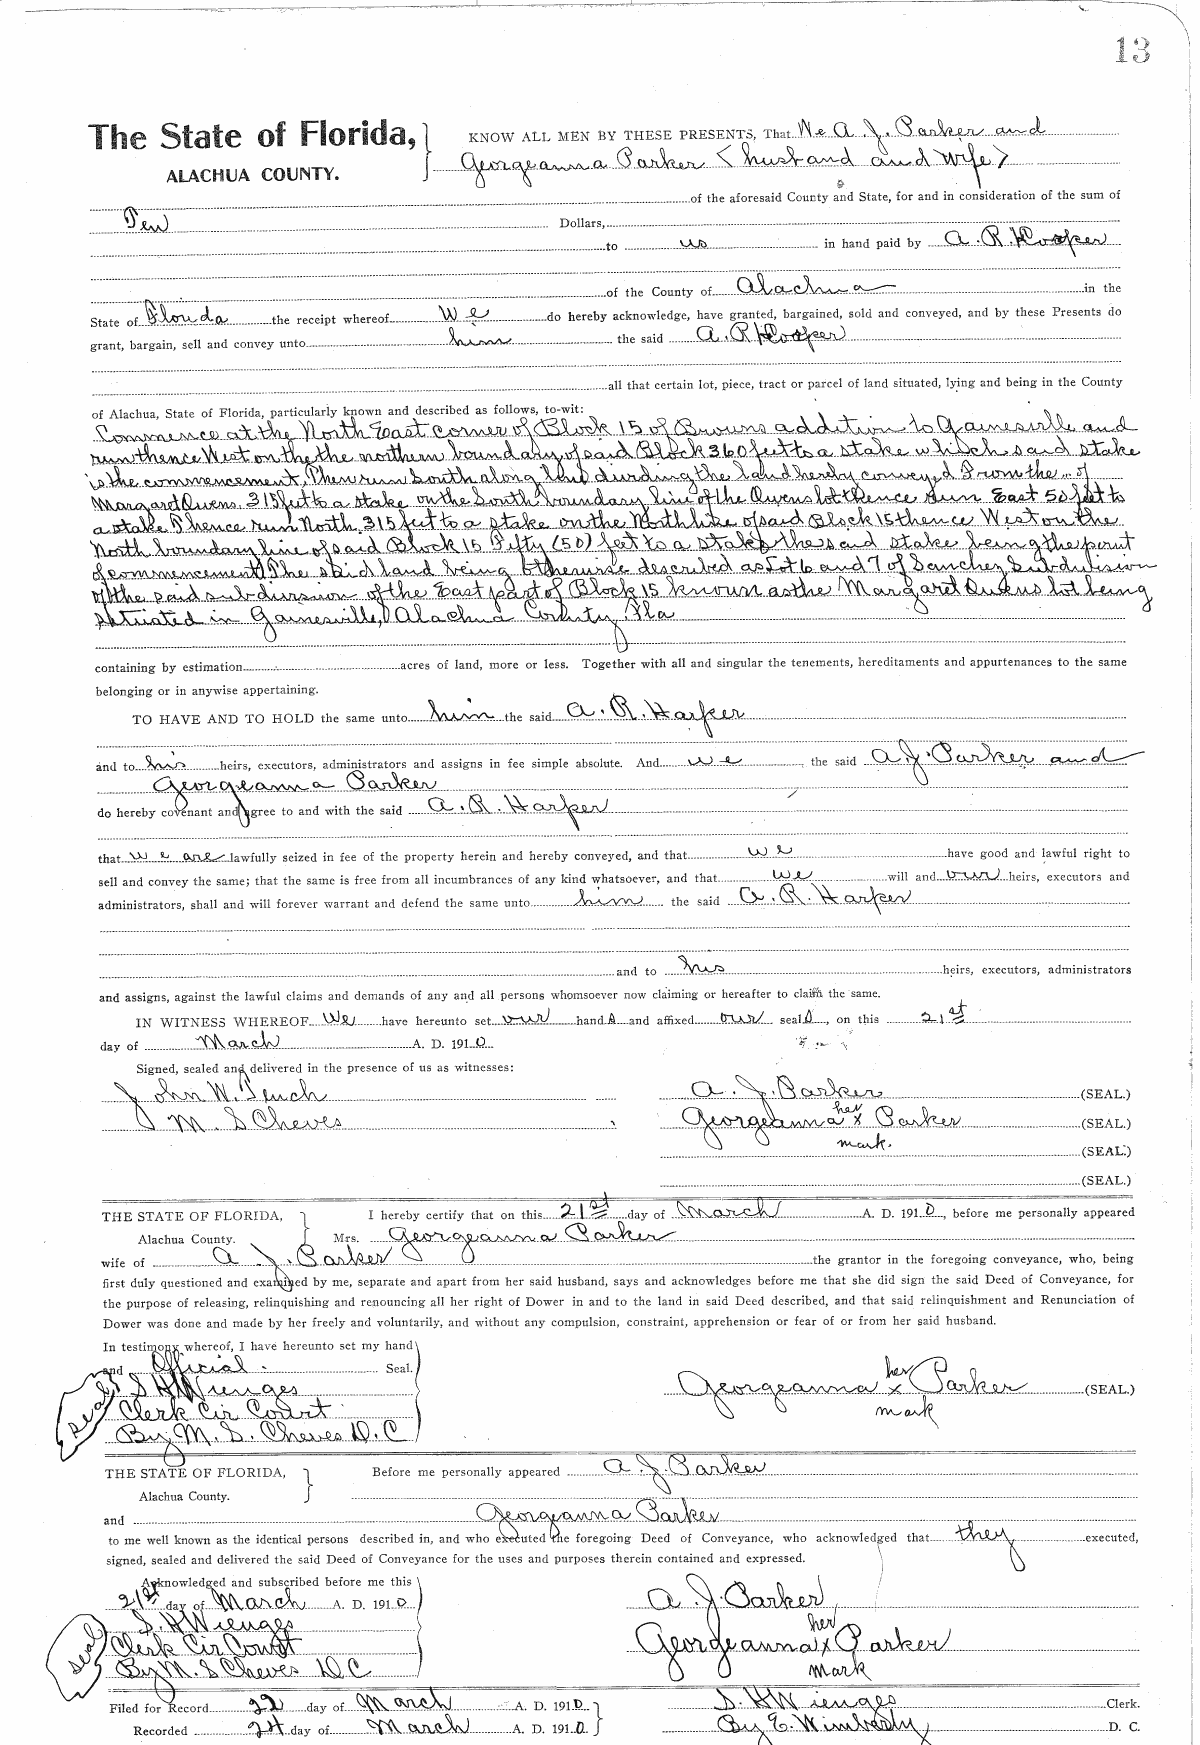 13
The State of Florida,
ALACHUA COUNTY.
KNOW ALL MEN BY THESE PRESENTS, That We A. J. Parker and
Georgeanna Parker (husband and wife)
of the aforesaid County and State, for and in consideration of the sum of
Ten Dollars,
to us in hand paid by A. R. Hooper
of the County of Alachua in the
State of Florida the receipt whereof We do hereby acknowledge, have granted, bargained, sold and conveyed, and by these Presents do
grant, bargain, sell and convey unto him the said A. R. Hooper
all that certain lot, piece, tract or parcel of land situated, lying and being in the County
of Alachua, State of Florida, particularly known and described as follows, to-wit:
Commence at the North East corner of Block 15 of Browns addition to Gainesville and
run thence West on the the northern boundary of said Block 360 feet to a stake which said stake
is the commencement, Then run South along line dividing the land hereby conveyed From the of
Margart Owens. 315 feet to a stake on the South boundary line of the Owens lot thence run East 50 feet to
a stake Thence run North, 315 feet to a stake on the North line of said Block 15 thence West on the
North boundary line of said Block 15 Fifty (50) feet to a stake the said stake being the point
of commencement The said land being otherwise described as Lot 6 and 7 of Sanchez Subdivision
of the said subdivision of the East part of Block 15 known as the Margaret Owens lot being
situated in Gainesville, Alachua County Fla
containing by estimation acres of land, more or less. Together with all and singular the tenements, hereditaments and appurtenances to the same
belonging or in anywise appertaining.
TO HAVE AND TO HOLD the same unto him the said A. R. Harper
and to his heirs, executors, administrators and assigns in fee simple absolute. And we the said A. J. Parker and
Georgeanna Parker
do hereby covenant and agree to and with the said A. R. Harper
that we are lawfully seized in fee of the property herein and hereby conveyed, and that we have good and lawful right to
sell and convey the same; that the same is free from all incumbrances of any kind whatsoever, and that we will and our heirs, executors and
administrators, shall and will forever warrant and defend the same unto him the said A. R. Harper
and to his heirs, executors, administrators
and assigns, against the lawful claims and demands of any and all persons whomsoever now claiming or hereafter to claim the same.
IN WITNESS WHEREOF We have hereunto set our hands and affixed our seals, on this 21st
day of March A. D. 1910
Signed, sealed and delivered in the presence of us as witnesses:
John W. Tench
M. S Cheves
A. J. Parker (SEAL.)
Georgeanna her x Parker (SEAL.)
mark. (SEAL.)
(SEAL.)
THE STATE OF FLORIDA,
Alachua County.
I hereby certify that on this 21st day of March A. D. 1910, before me personally appeared
Mrs. Georgeanna Parker
wife of A J. Parker the grantor in the foregoing conveyance, who, being
first duly questioned and examined by me, separate and apart from her said husband, says and acknowledges before me that she did sign the said Deed of Conveyance, for
the purpose of releasing, relinquishing and renouncing all her right of Dower in and to the land in said Deed described, and that said relinquishment and Renunciation of
Dower was done and made by her freely and voluntarily, and without any compulsion, constraint, apprehension or fear of or from her said husband.
In testimony whereof, I have hereunto set my hand
and Official Seal.
seal S. H Wienges
Clerk Cir Court
By M. S. Cheves D. C
Georgeanna her x Parker (SEAL.)
mark
THE STATE OF FLORIDA,
Alachua County.
Before me personally appeared A. J. Parker
and Georgeanna Parker
to me well known as the identical persons described in, and who executed the foregoing Deed of Conveyance, who acknowledged that they executed,
signed, sealed and delivered the said Deed of Conveyance for the uses and purposes therein contained and expressed.
Acknowledged and subscribed before me this
21st day of March A. D. 1910
seal S. H Wienges
Clerk Cir Court
By M. S Cheves D C
A. J. Parker
Georgeanna her x Parker
mark
Filed for Record 22 day of March A. D. 1910
Recorded 24 day of March A. D. 1910
S. H Wienges Clerk.
By E. Wimberly D. C.